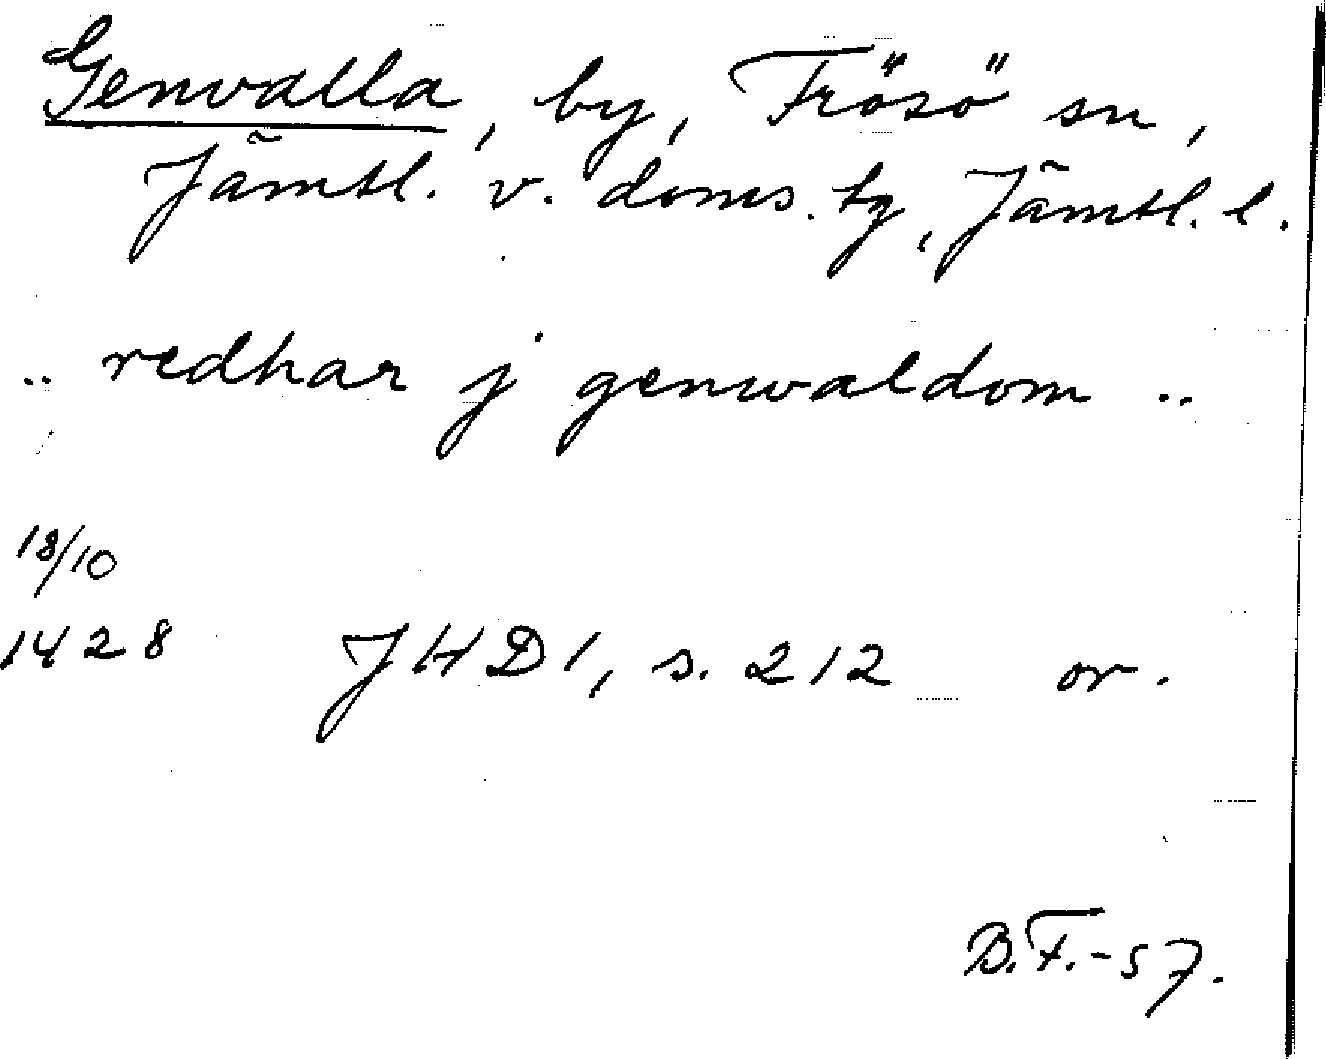 Genvalla, by, Frösö sn,
Jämtl. v. doms. tg, Jämtl. l.
.. redhar j genwaldom ..
18/10
1428 JHD 1, s. 212 or.
B.F.-57.